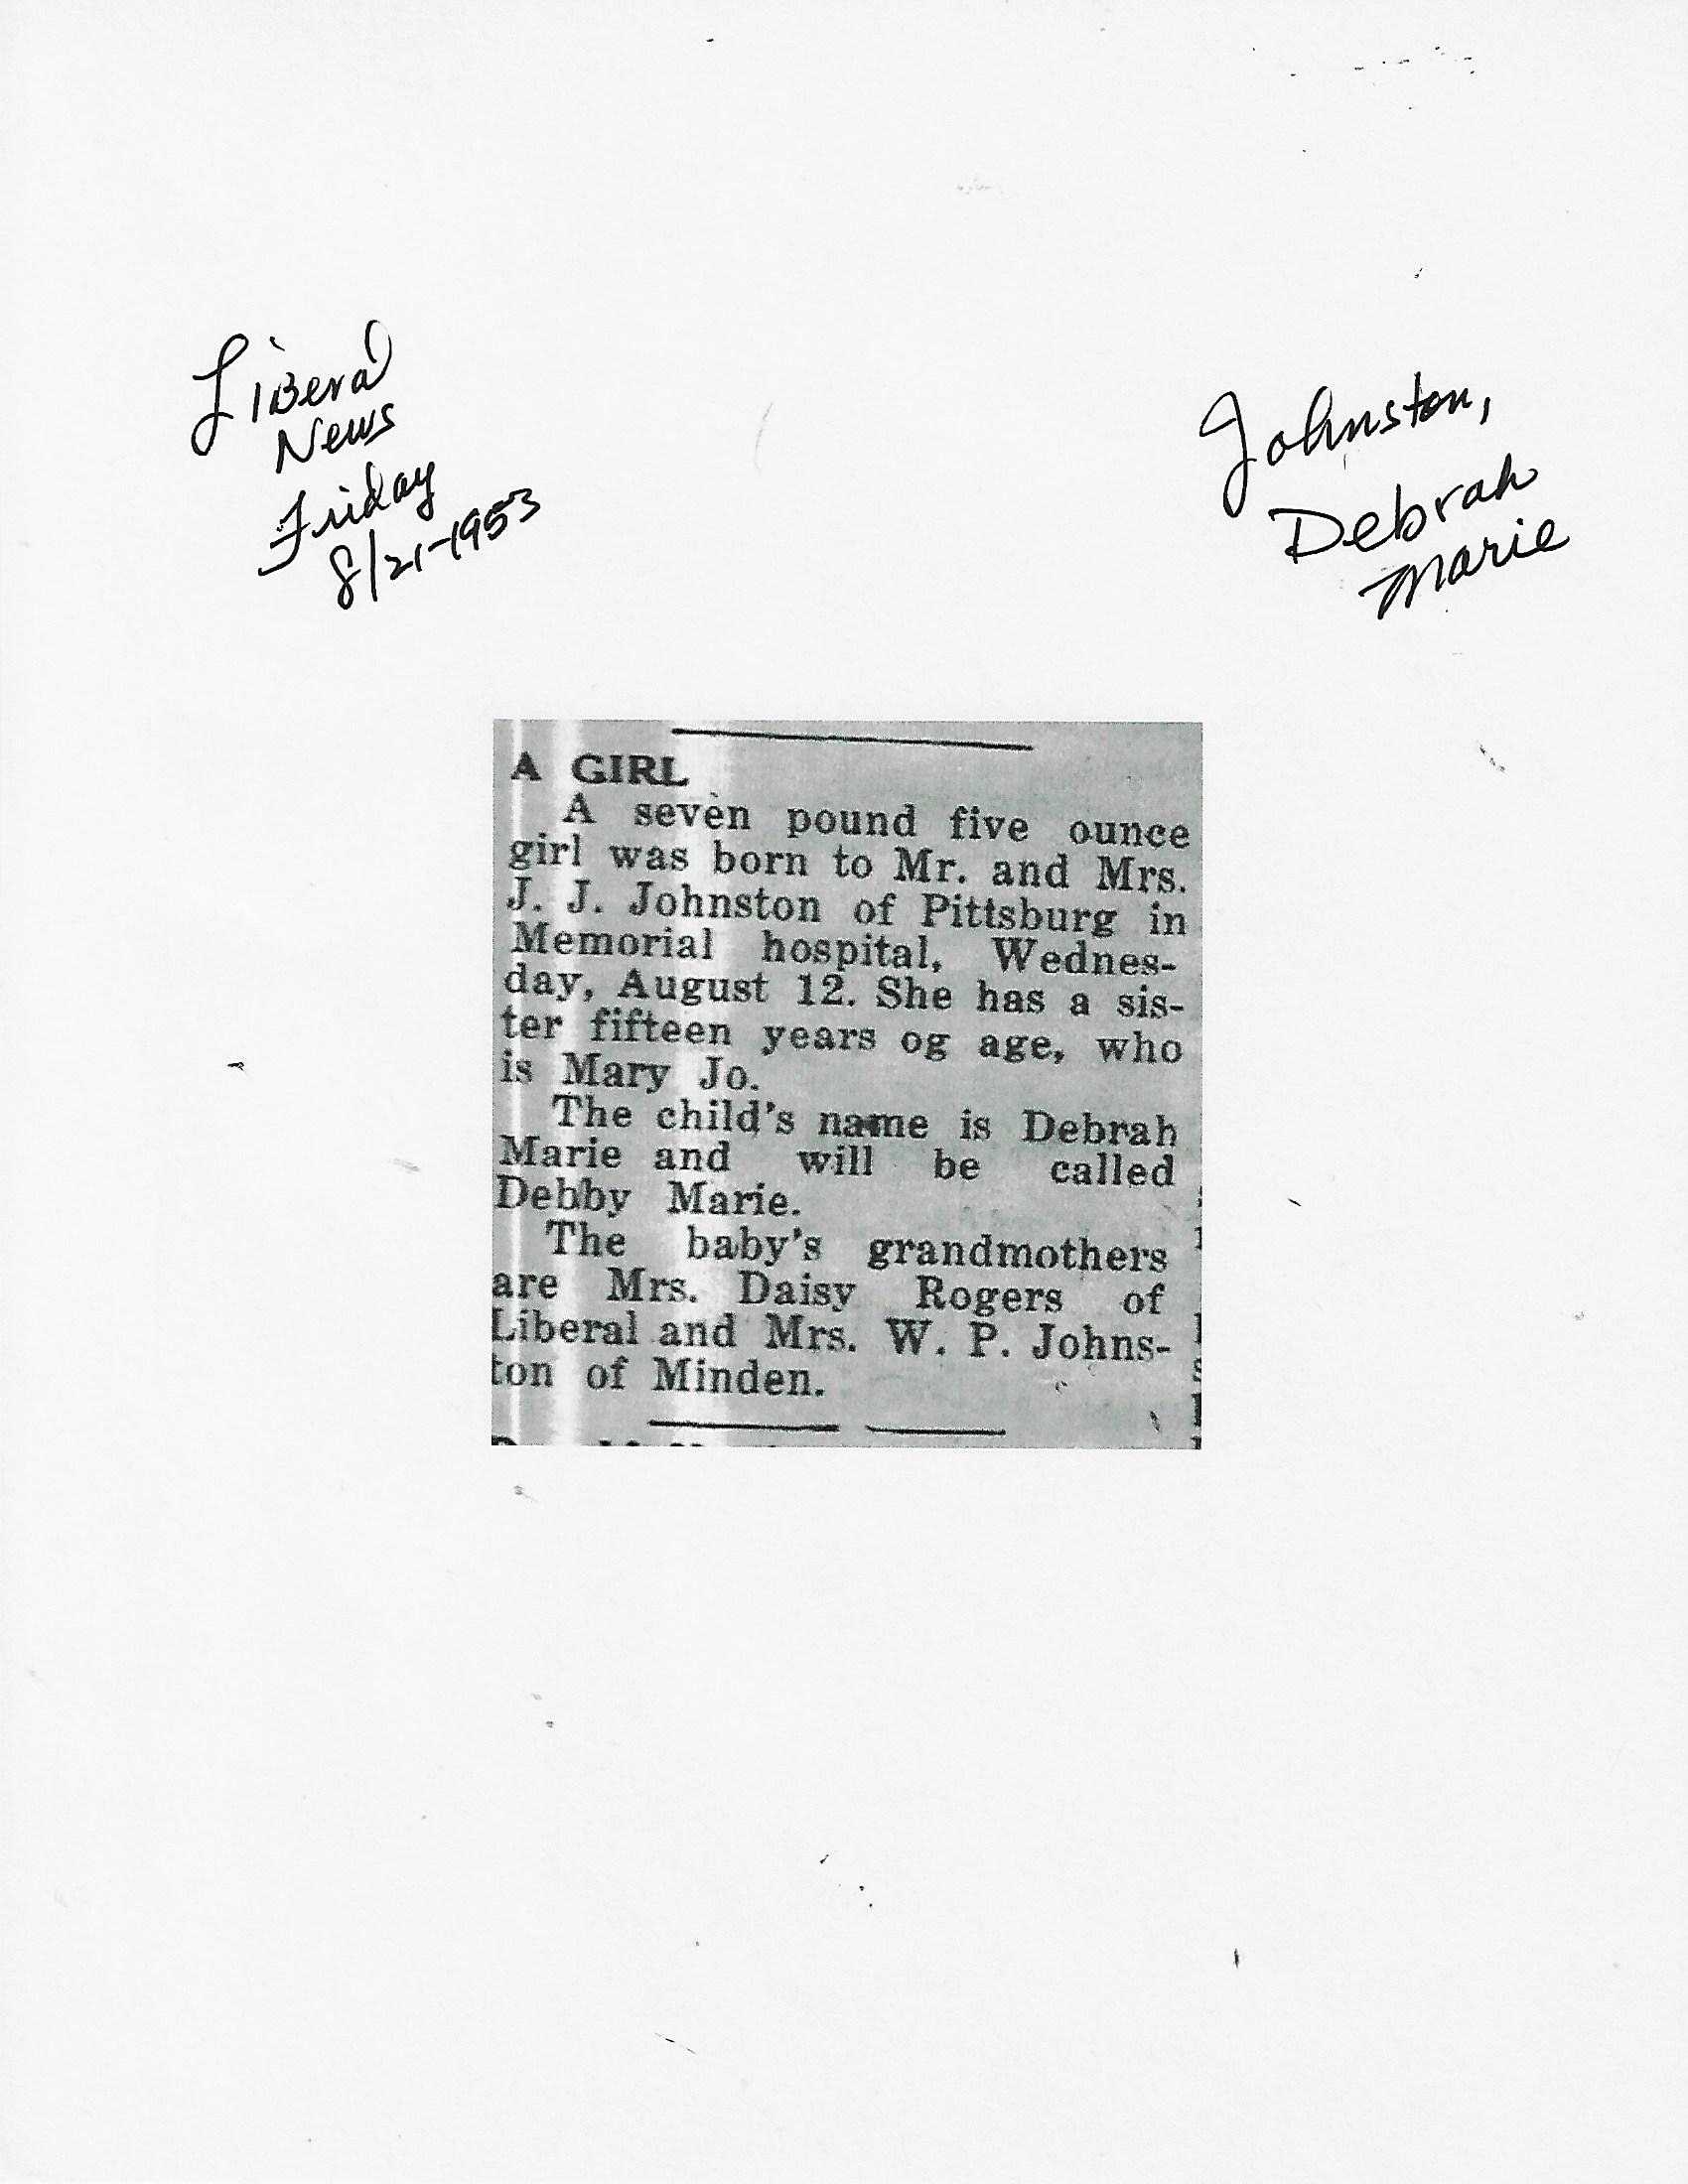 Liberal
News
Friday
8/21-1953
Johnston,
Debrah
Marie
A GIRL
A seven pound five ounce
girl was born to Mr. and Mrs.
J. J. Johnston of Pittsburg in
Memorial hospital, Wednes-
day, August 12. She has a sis-
ter fifteen years og age, who
is Mary Jo.
The child's name is Debrah
Marie and will be called
Debby Marie.
The baby's grandmothers
are Mrs. Daisy Rogers of
Liberal and Mrs. W. P. Johns-
ton of Minden.